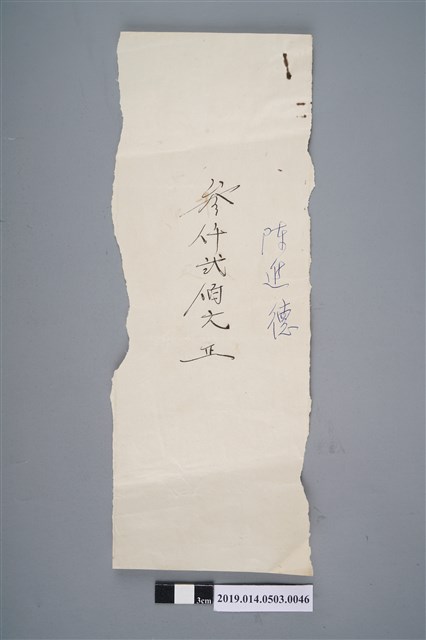 陈進德
參仟弍佰元正
3cm
2019.014.0503.0046